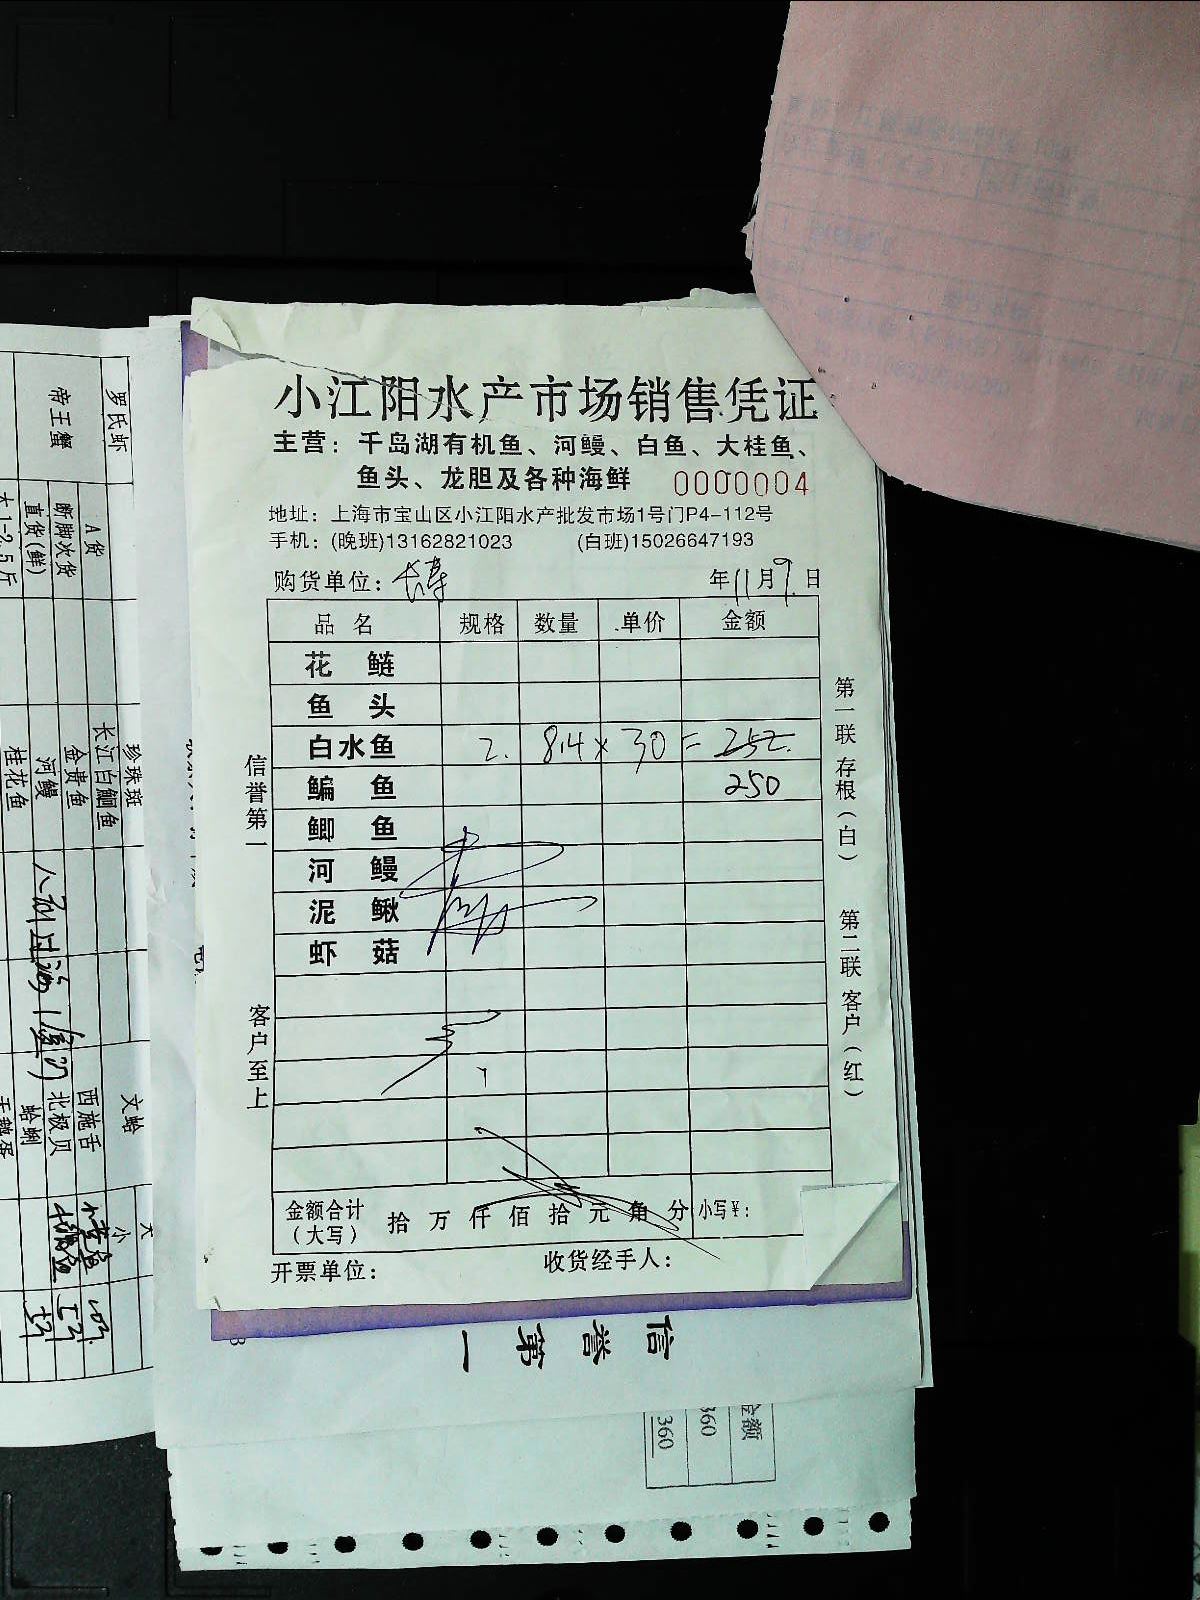 小江阳水产市场销售凭证
主营：千岛湖有机鱼、河鳗、白鱼、大桂鱼、
鱼头、龙胆及各种海鲜 0000004
地址：上海市宝山区小江阳水产批发市场1号门P4-112号
手机：(晚班)13162821023 (白班)15026647193
购货单位：长寿 年11月9日
品名 规格 数量 单价 金额
花鲢
鱼头
白水鱼 2. 8.4×30=252.
鳊鱼 250
鲫鱼
河鳗
泥鳅
虾菇
金额合计（大写） 拾万仟佰拾元角分 小写¥：
开票单位： 收货经手人：
信誉第一
客户至上
第一联 存根（白）
第二联 客户（红）
罗氏虾
帝王蟹
A货
断脚次货
直货(鲜)
大1-2.5斤
珍珠斑
长江白鮰鱼
金贵鱼
河鳗
桂花鱼
文蛤
西施舌
北极贝
蛤蜊
大
小
信誉第一
金额
360
360